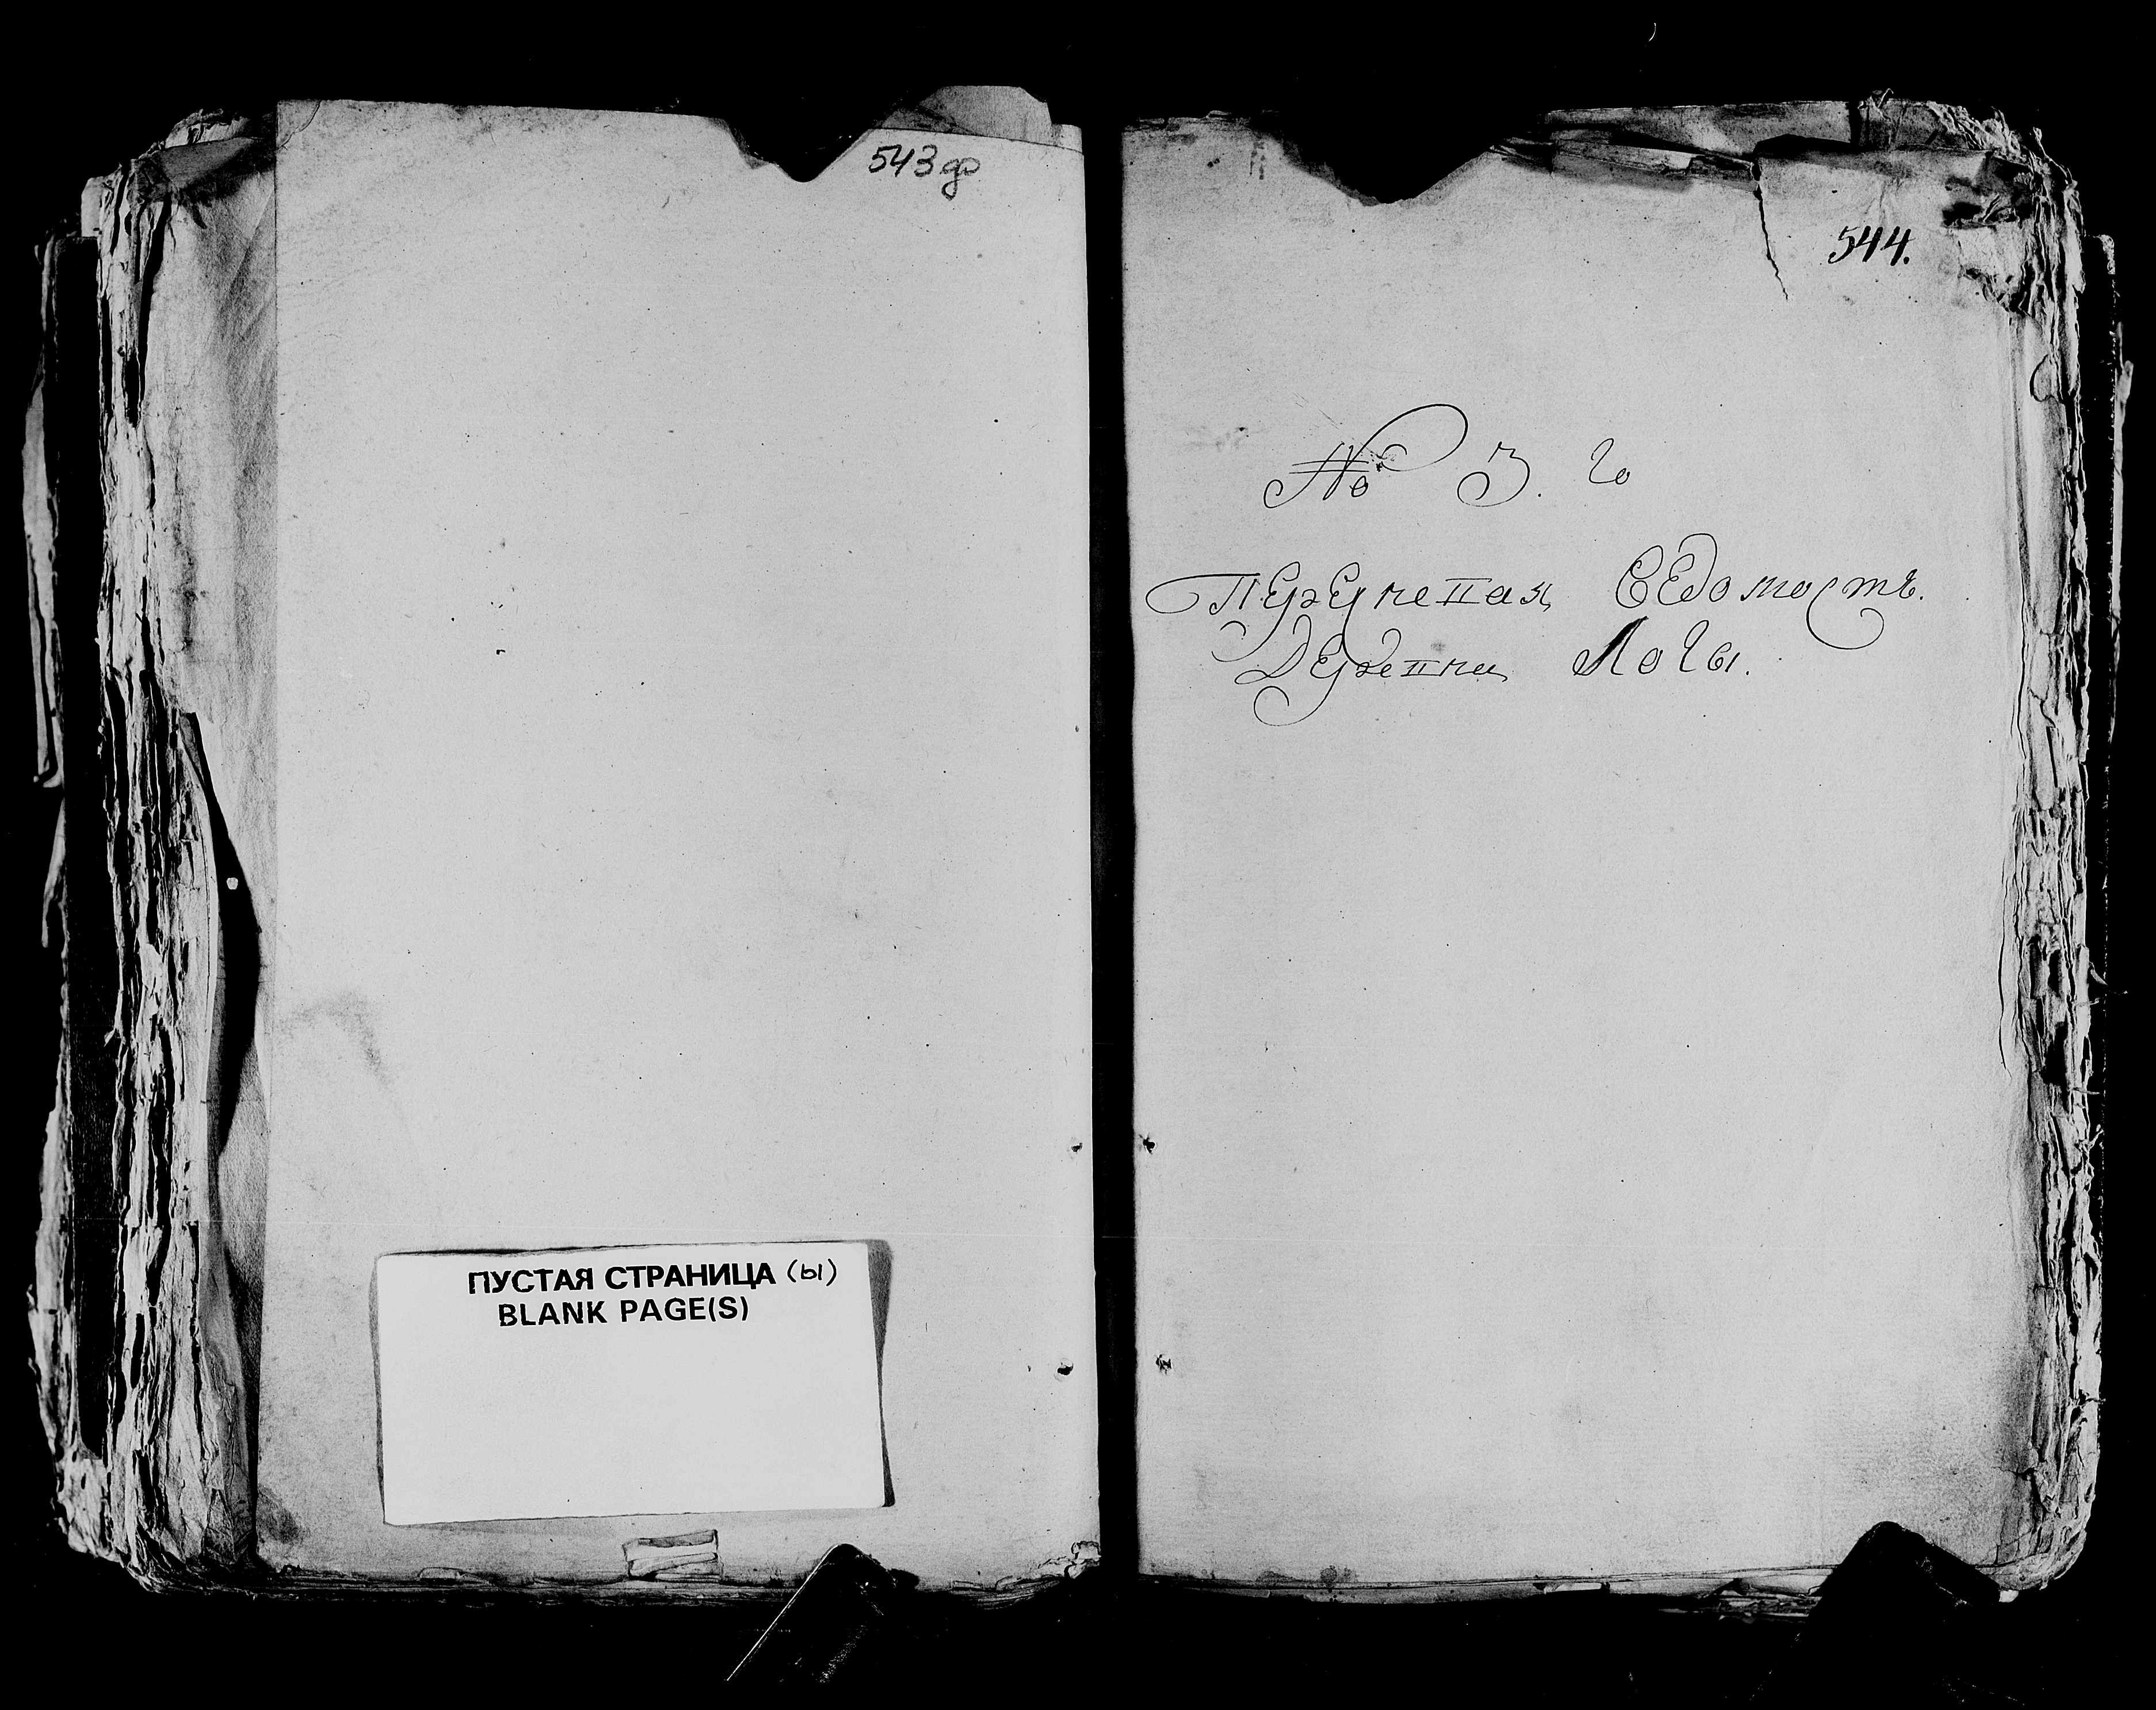 543об
ПУСТАЯ СТРАНИЦА (Ы)
BLANK PAGE(S)
544.
№ 3. го
Перечневая Ведомость.
Деревни Логы.